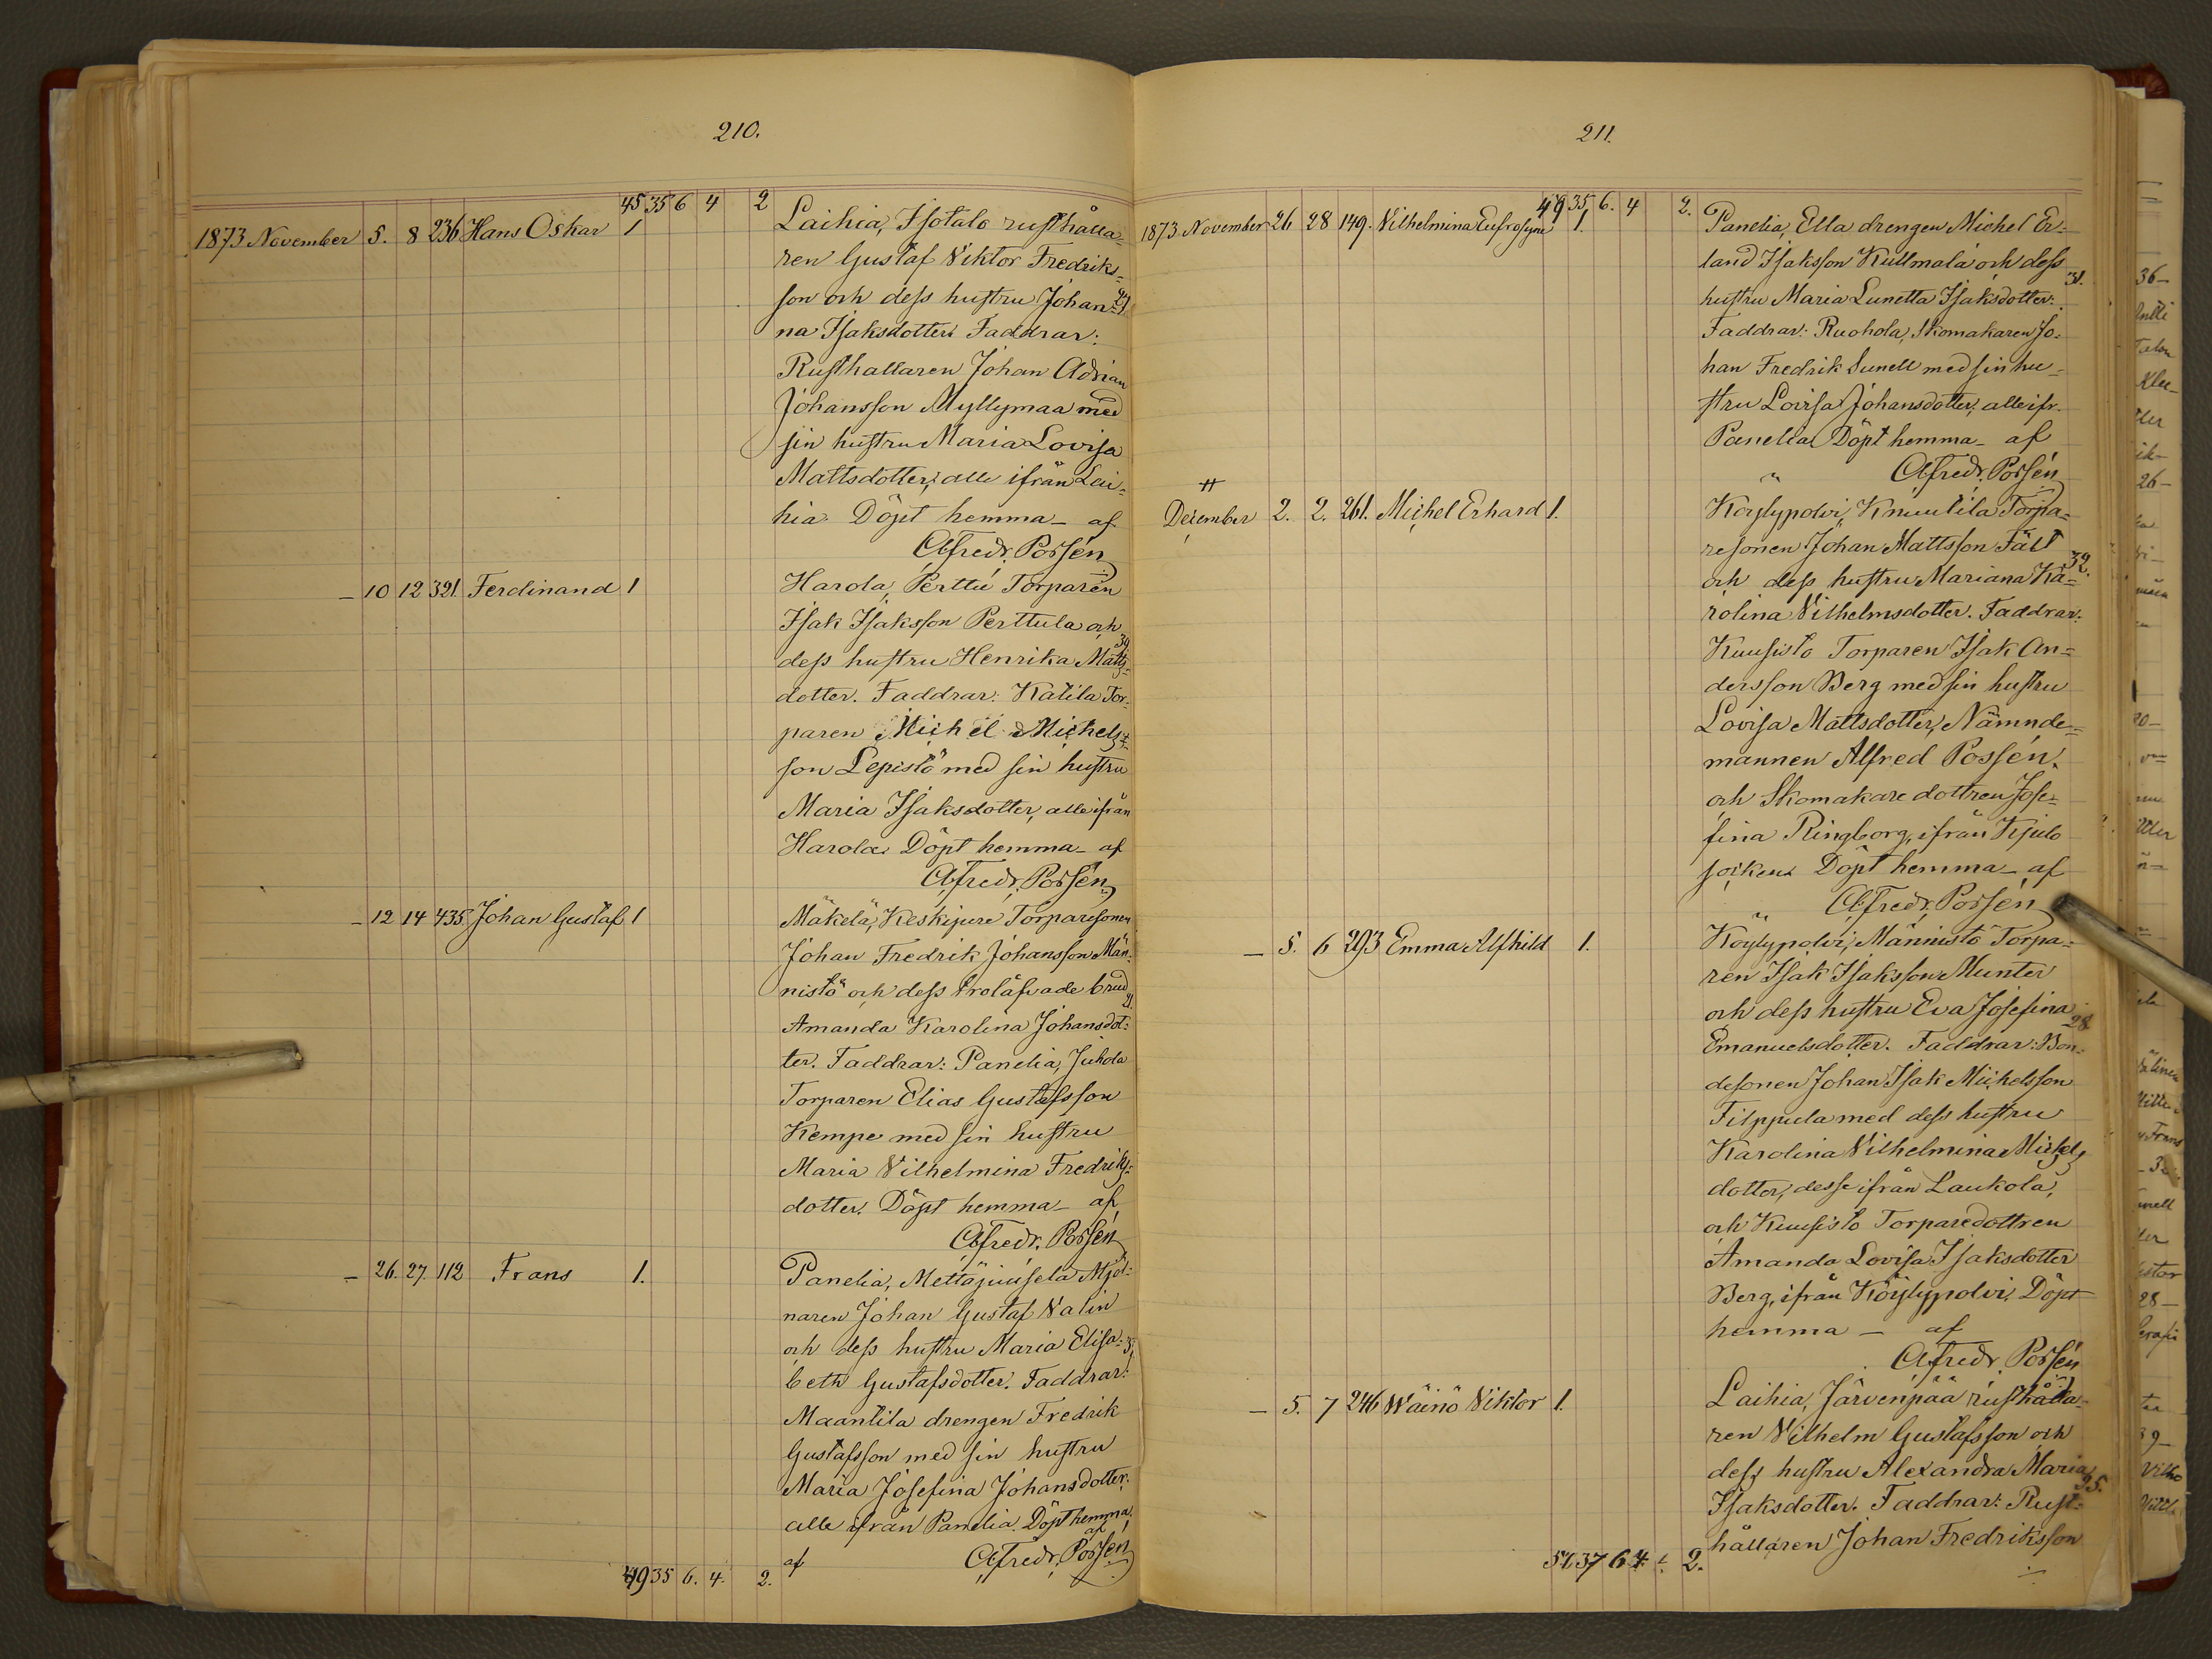 210.
45 35 6 4 2
1873 November 5. 8 236 Hans Oskar 1
Laihia, Isotalo rusthålla-
ren Gustaf Viktor Fredriks-
son och dess hustru Johan- 27.
na Isaksdotter. Faddrar:
Rusthållaren Johan Adrian
Johansson Myllymaa med
sin hustru Maria Lovisa
Mattsdotter, alle ifrån Lai-
hia. Döpt hemma - af
Alfredr. Possén
- 10 12 321 Ferdinand 1
Harola, Perttu Torparen
Isak Isaksson Perttula och
dess hustru Henrika Matts- 39
dotter. Faddrar: Katila Tor-
paren Michel Michels-
son Lepistö med sin hustru
Maria Isaksdotter, alle ifrån
Harola. Döpt hemma - af
Alfredr. Possén
- 12 14 435 Johan Gustaf 1
Mäkelä, Keskijure Torparesonen
Johan Fredrik Johansson Män-
nistö och dess trolåfvade brud
Amanda Karolina Johansdot- 21.
ter. Faddrar: Panelia, Juhola
Torparen Elias Gustafsson
Kempe med sin hustru
Maria Vilhelmina Fredriks-
dotter. Döpt hemma - af
Alfredr. Possén
- 26. 27. 112 Frans 1.
Panelia, Mettäjuusela Mjöl-
naren Johan Gustaf Valin
och dess hustru Maria Elisa-
beth Gustafsdotter. Faddrar:
Maantila drengen Fredrik
Gustafsson med sin hustru
Maria Josefina Johansdotter,
alle ifrån Panelia. Döpt hemma
af
af Alfredr. Possén
49 35 6. 4. 2.
211.
49 35 6. 4 2.
1873 November 26 28 149. Vilhelmina Eufrosyne 1.
Panelia, Ella drengen Michel Er-
land Isaksson Kullmala och dess
hustru Maria Lunetta Isaksdotter. 31.
Faddrar: Ruohola, Skomakaren Jo-
han Fredrik Sunell med sin hu-
stru Lovisa Johansdotter, alle ifr.
Panelia. Döpt hemma - af
Alfredr. Possén
December 2. 2. 261. Michel Erhard 1.
Köylypolvi, Knuutila Torpa-
resonen Johan Mattsson Fält
och dess hustru Mariana Ka- 32.
rolina Vilhelmsdotter. Faddrar:
Kuusisto Torparen Isak An-
dersson Berg med sin hustru
Lovisa Mattsdotter, Nämnde-
mannen Alfred Possén.
och Skomakare dottren Jose-
fina Ringborg, ifrån Kjulo
socken. Döpt hemma - af
Alfredr. Possén
- 5. 6 293 Emma Alfhild 1.
Köylypolvi, Männistö Torpa-
ren Isak Isaksson Munter
och dess hustru Eva Josefina 28
Emanuelsdotter. Faddrar: Bon-
desonen Johan Isak Michelsson
Filppula med dess hustru
Karolina Vilhelmina Michels
dotter, desse ifrån Laukola,
och Kuusisto Torparedottren
Amanda Lovisa Isaksdotter
Berg, ifrån Köylypolvi. Döpt
hemma - af
Alfredr. Possén
- 5. 7 246 Wäinö Viktor 1.
Laihia, Järvenpää rusthålla-
ren Vilhelm Gustafsson och
dess hustru Alexandra Maria 25.
Isaksdotter. Faddrar: Rust-
hållaren Johan Fredriksson
51 37 6 4 2.